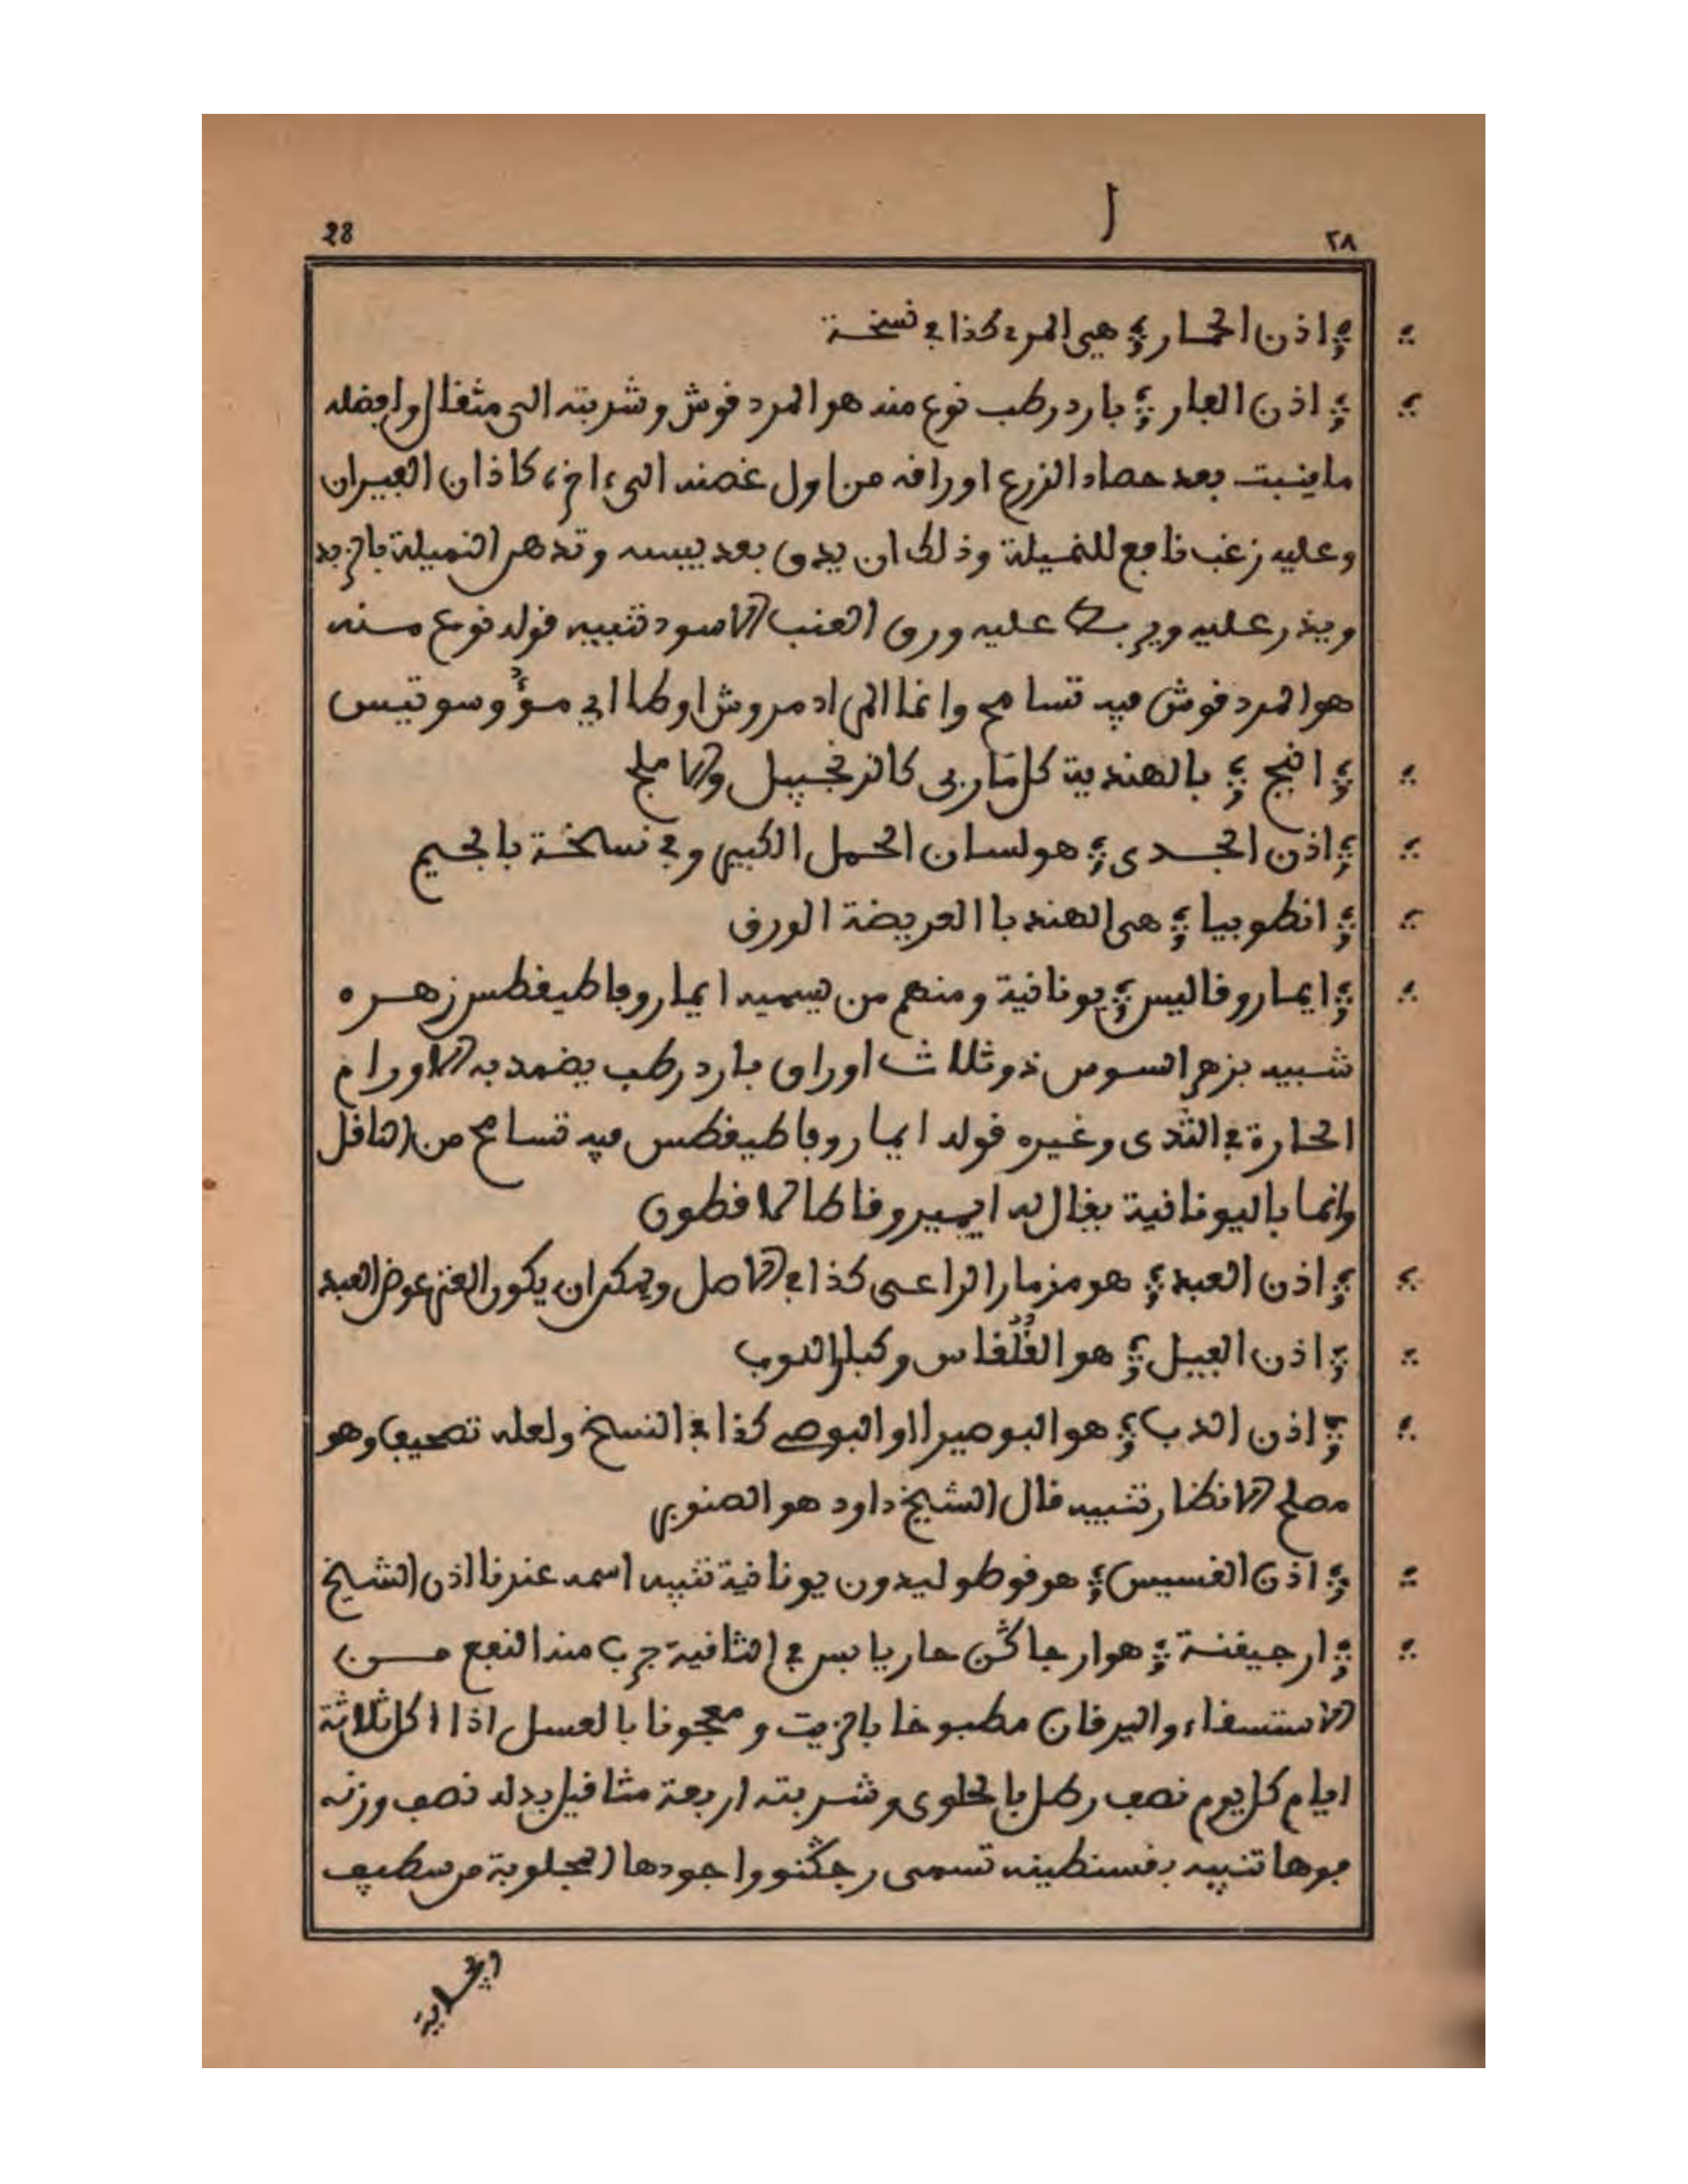 28 ا ٢٨
؞ اذن الحمار ؞ هي المرء كذا في نسخة
؞ اذن الفار ؞ بارد رطب نوع منه هو المردقوش وشربته الى مثقال وافضله
ما ينبت بعد حصاد الزرع اوراقه من اول غصنه الى ءاخره كاذان الفيران
وعليه زغب نافع للنميلة وذلك ان يدق بعد يبسه وتدهن النميلة بالزبد
ويذر عليه ويربط عليه ورق العنب الاسود تنبيه قوله نوع منه
هو المردقوش فيه تسامح وانما المراد مروش اوطا اي مؤوسوتيس
؞ انبج ؞ بالهندية كل مّا ربى كالزنجبيل والاملج
؞ اذن الجدى ؞ هو لسان الحمل الكبير وفي نسخة بالجيم
؞ انطوبيا ؞ هي الهندبا العريضة الورق
؞ ايماروقاليس ؞ يونانية ومنهم من يسميه ايماروفاطيغطس زهره
شبيه بزهر السوس ذو ثلاث اوراق بارد رطب يضمد به الاورام
الحارة في الثدى وغيره قوله ايماروفاطيغطس فيه تسامح من الناقل
وانما باليونانية يقال له ايميروقاطالاقطون
؞ اذن العبد ؞ هو مزمار الراعى كذا في الاصل ويمكن ان يكون العنز عوض العبد
؞ اذن الفيل ؞ هو القُلُقاس وكبار اللوب
؞ اذن الدب ؞ هو البوصيرا او البوصى كذا في النسخ ولعله تصحيف وهو
مصلح الانظار تنبيه قال الشيخ داود هو الصنوبر
؞ اذن القسيس ؞ هو قوطوليدون يونانية تنبيه اسمه عندنا اذن الشيخ
؞ ارجيقنة ؞ هو ارجاڭن حار يابس في الثانية جرب منه النفع من
الاستسقاء واليرقان مطبوخا بالزيت ومعجونا بالعسل اذا اكل ثلاثة
ايام كل يوم نصف رطل بالحلوى وشربته اربعة مثاقيل بدله نصف وزنه
فوها تنبيه بقسنطينه تسمى رجڭنو واجودها المجلوبة من سطيف